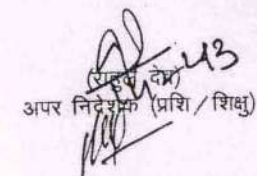 (राहुल देव)
अपर निदेशक (प्रशि / शिक्षु)